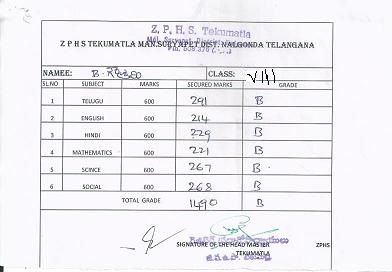 Z. P. H. S. Tekumatla
Z P H S TEKUMATLA MAN.SURYAPET DIST. NALGONDA TELANGANA
NAMEE: B. CLASS: VIII
SL.NO SUBJECT MARKS SECURED MARKS GRADE
1 TELUGU 600 291 B
2 ENGLISH 600 214 B
3 HINDI 600 229 B
4 MATHEMATICS 600 221 B
5 SCINCE 600 267 B
6 SOCIAL 600 268 B
TOTAL GRADE 1490 B
SIGNATURE OF THE HEAD MASTER ZPHS
TEKUMATLA